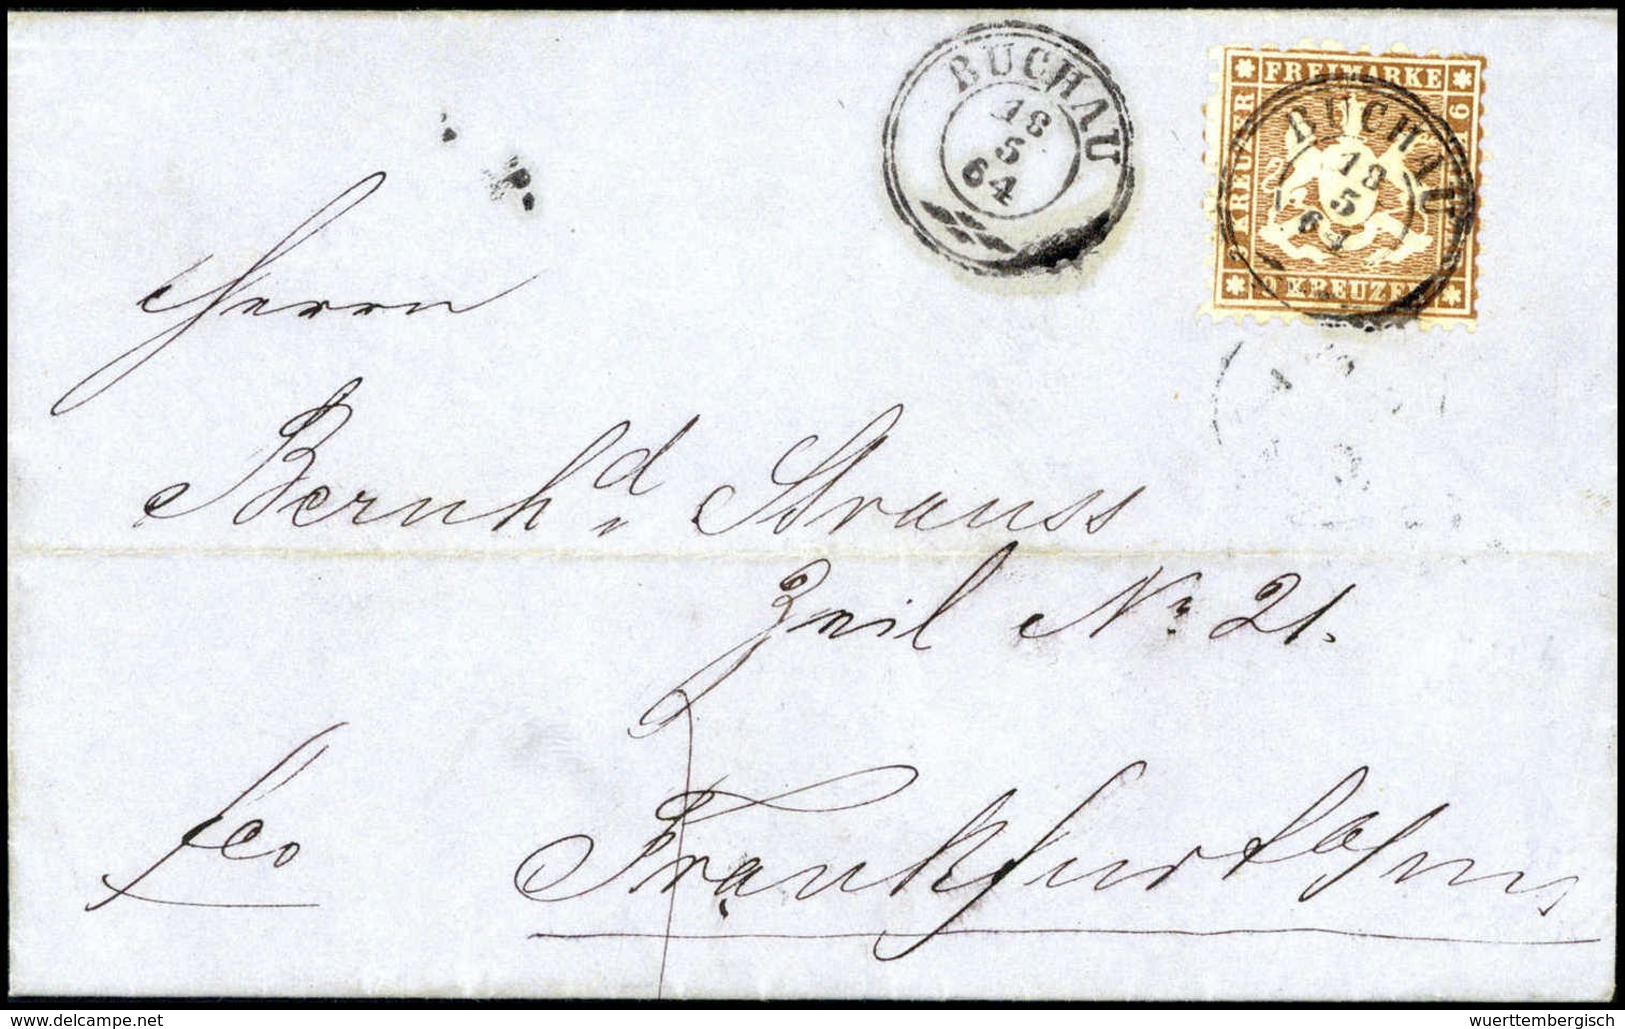 BUCHAU
18
5
64
FREIMARKE
KREUZER
9 KREUZER
BUCHAU
18
5
64
Herrn
Bernhd Strauss
Zeil Nr 21.
fco Frankfurt a/Main
© www.delcampe.net
wuerttembergisch